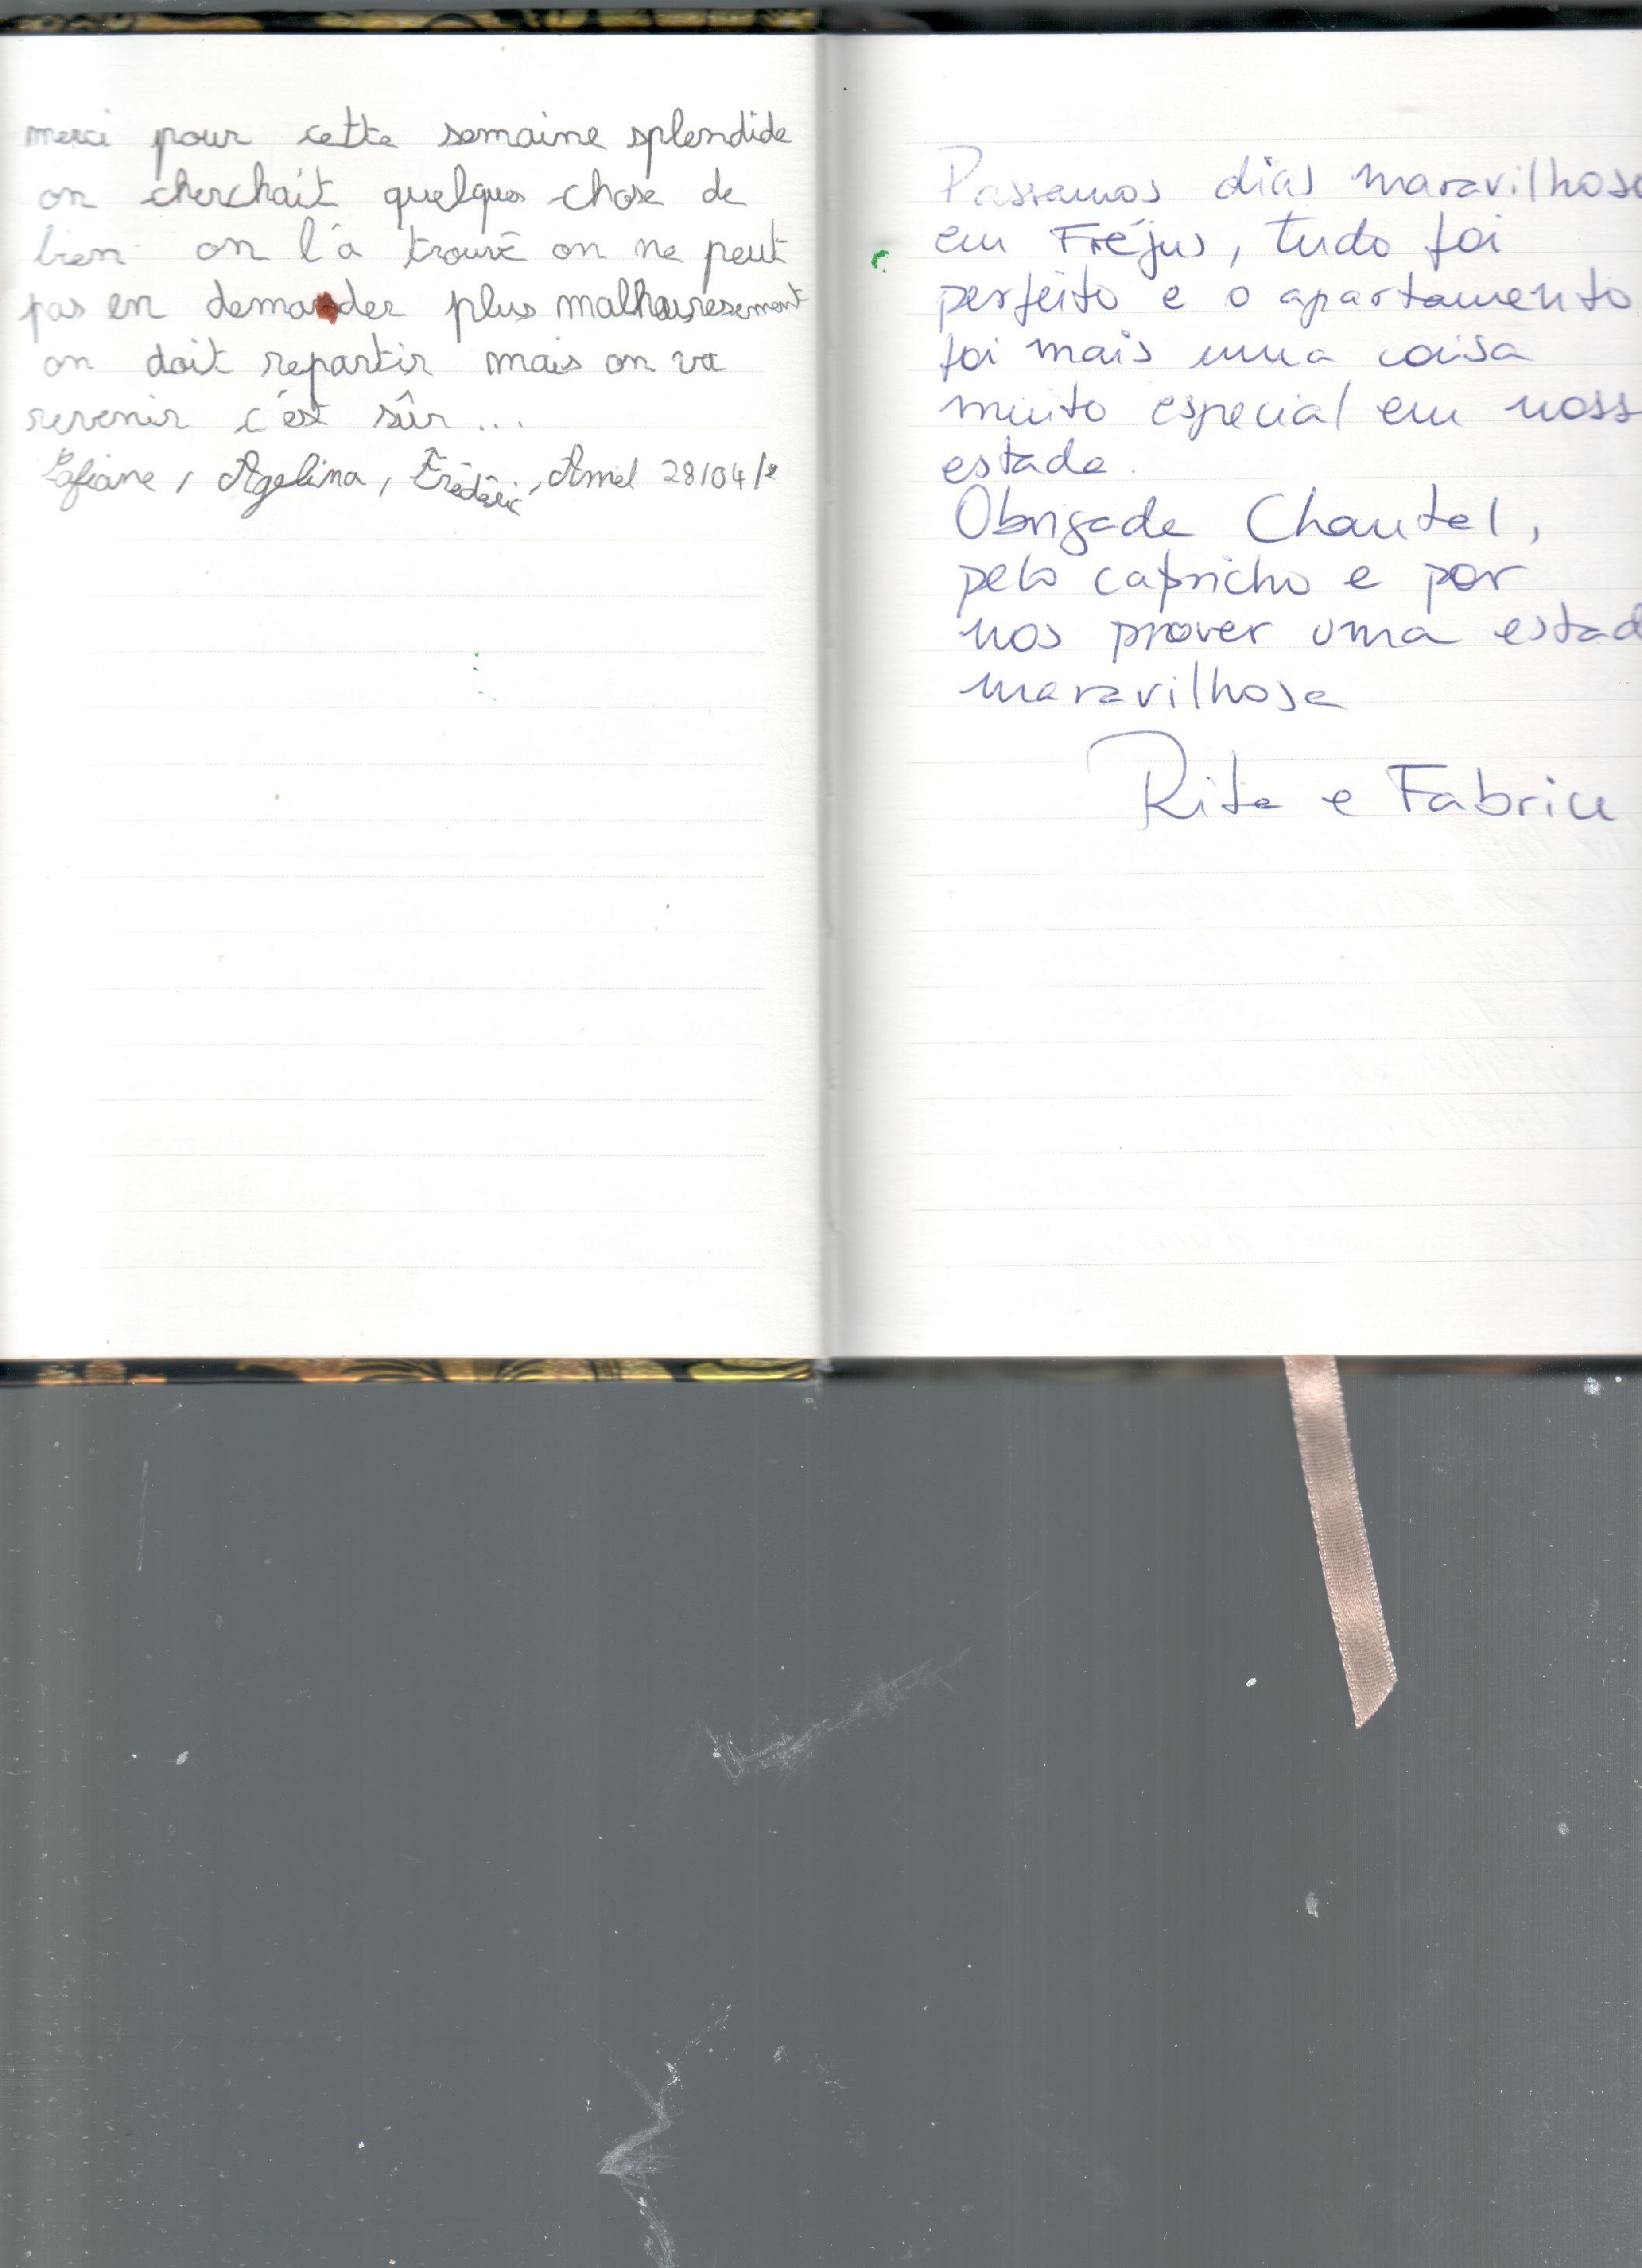 merci pour cette semaine splendide
on cherchait quelques chose de
bien on l'a trouvé on ne peut
pas en demander plus malheuresement
on doit repartir mais on va
revenir c'est sûr...
Agelina, Frédéric, Amel 28/04/
Passamos dias maravilhoso
em Fréjus, tudo foi
perfeito e o apartamento
foi mais uma coisa
muito especial em noss
estada.
Obrigada Chantal,
pelo capricho e por
nos prover uma estad
maravilhosa
Rita e Fabrici